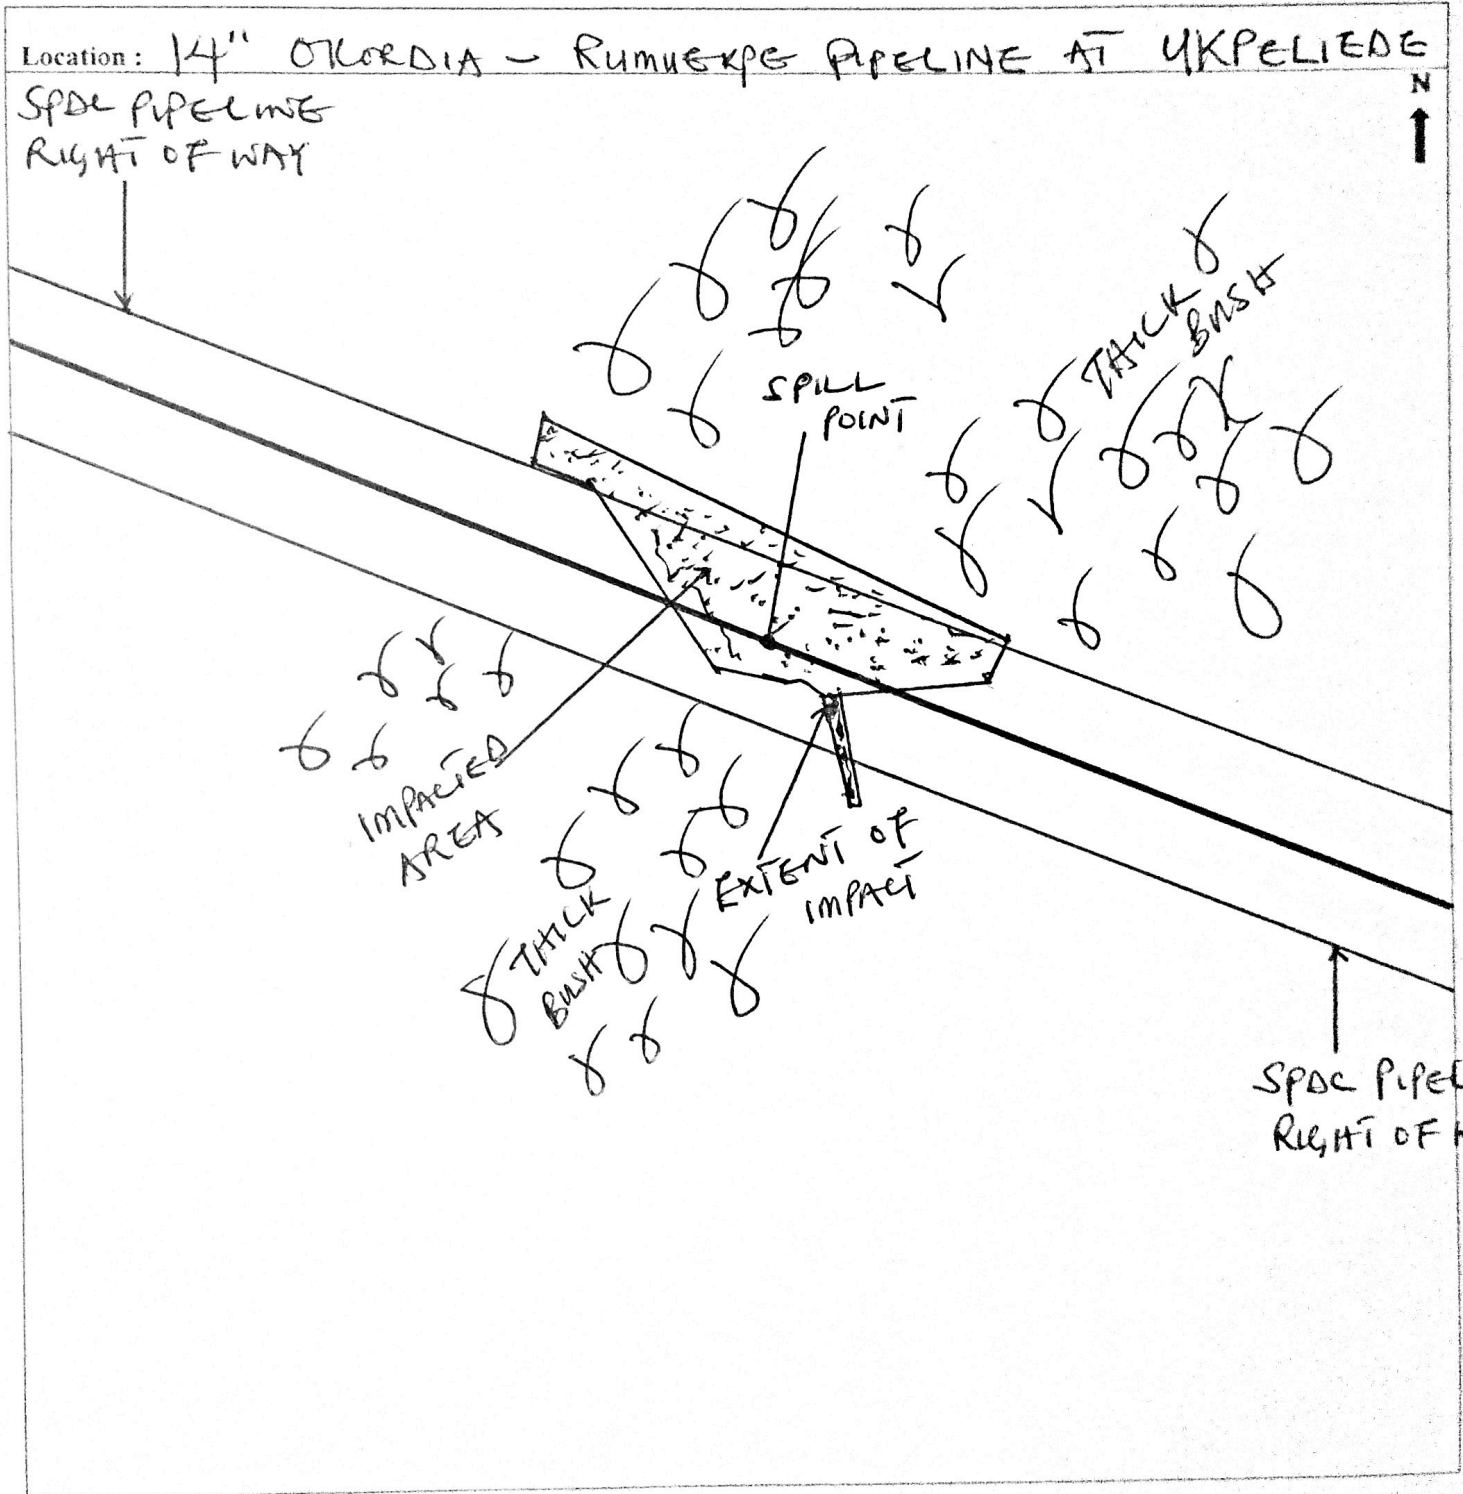 Location : 14" OKORDIA - RUMUEKPE PIPELINE AT UKPELIEDE
N
SPDC PIPELINE
RIGHT OF WAY
THICK
BUSH
SPILL
POINT
IMPACTED
AREA
EXTENT OF
IMPACT
THICK
BUSH
SPDC PIPEL
RIGHT OF